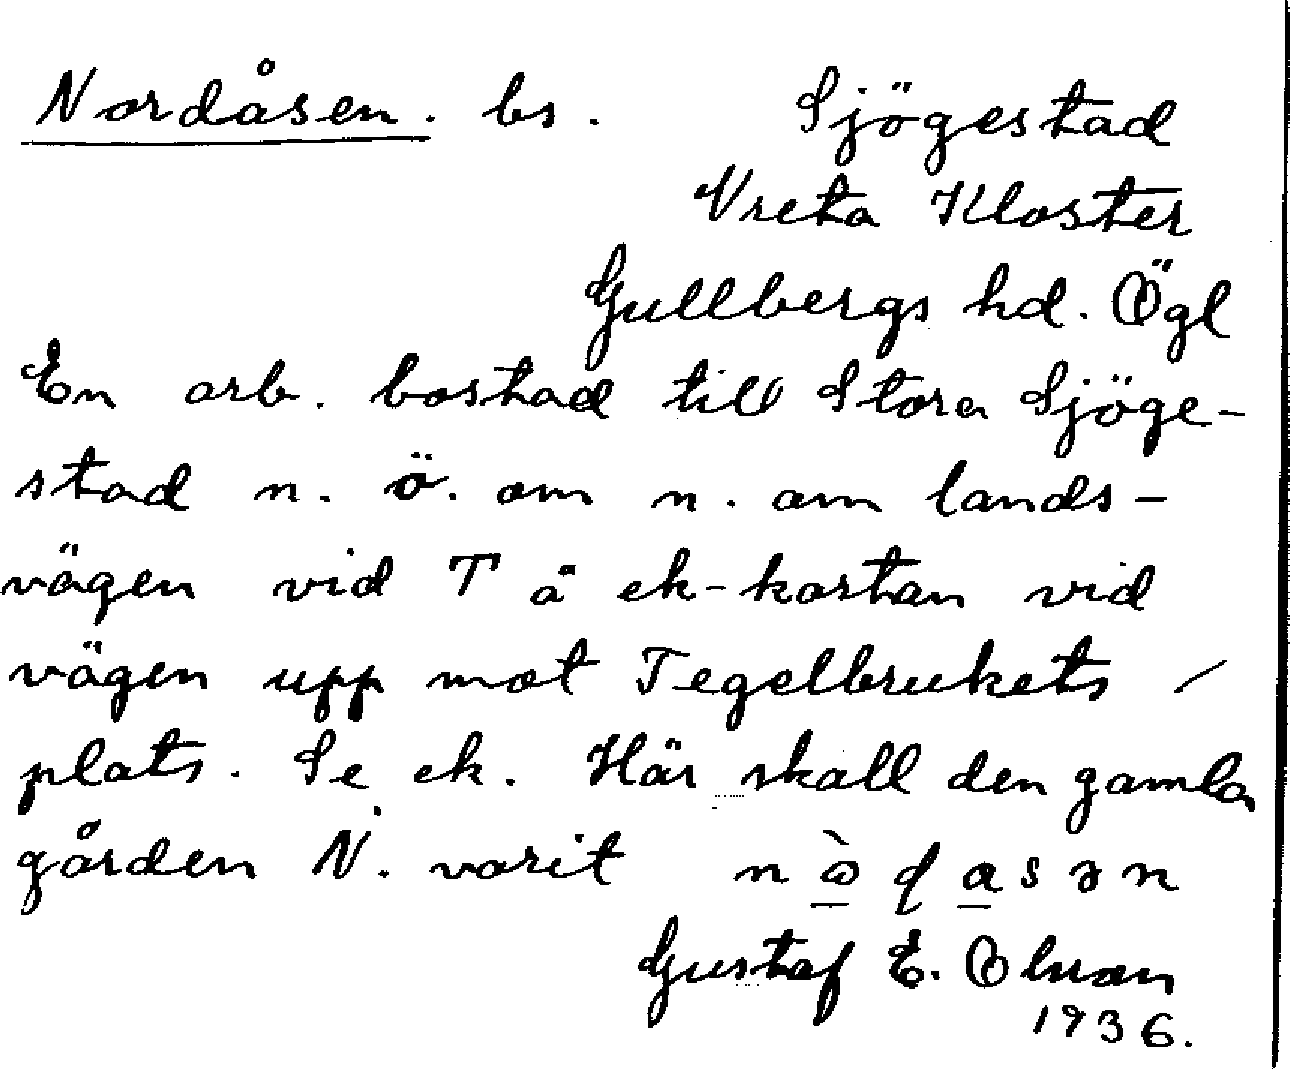 Nordåsen. bs. Sjögestad
Vreta Kloster
Gullbergs hd. Ögl
En arb. bostad till Stora Sjöge-
stad n. ö. om n. om lands-
vägen vid T å ek-kartan vid
vägen upp mot Tegelbrukets
plats. Se ek. Här skall den gamla
gården N. varit
Gustaf E. Olsson
1936.